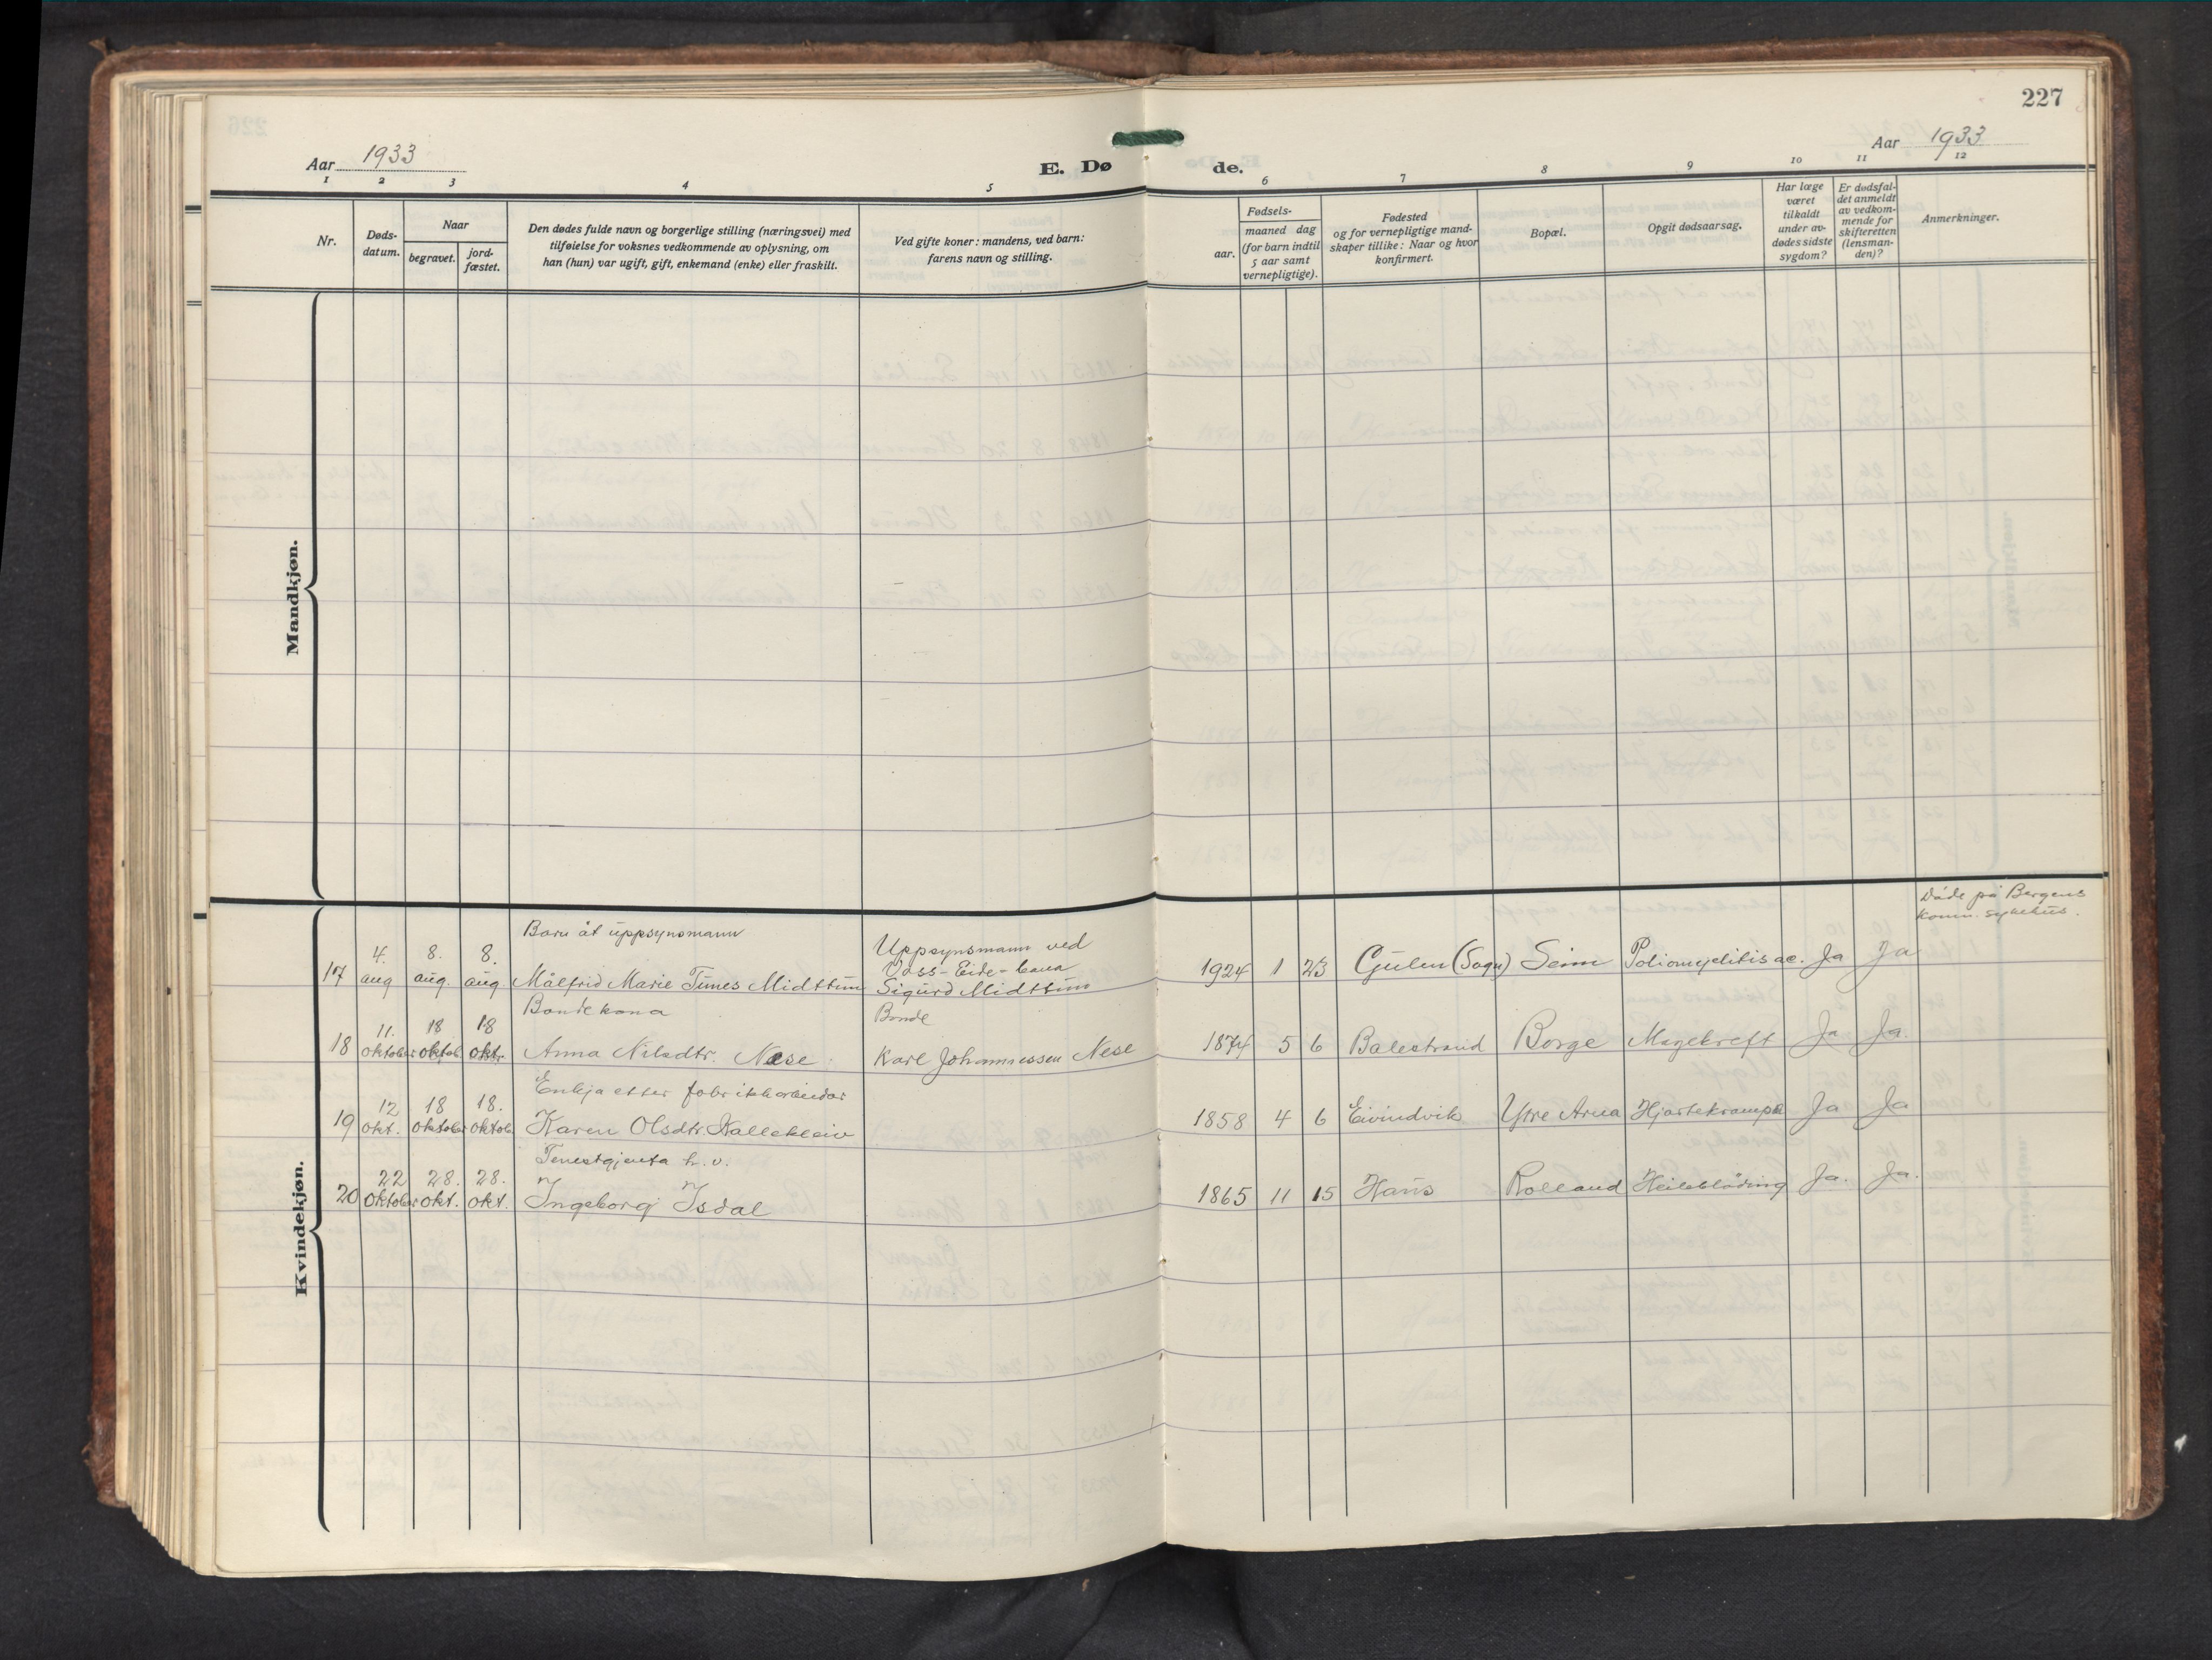 227
Aar 1933
E. Dø
de.
Aar 1933
1 2 3 4 5 6 7 8 9 10 11 12
Nr.
Døds-
datum.
Naar
begravet.
jord-
fæstet.
Den dødes fulde navn og borgerlige stilling (næringsvei) med
tilføielse for voksnes vedkommende av oplysning, om
han (hun) var ugift, gift, enkemand (enke) eller fraskilt.
Ved gifte koner: mandens, ved barn:
farens navn og stilling.
Fødsels-
aar.
maaned dag
(for barn indtil
5 aar samt
vernepligtige).
Fødested
og for vernepligtige mand-
skaper tillike: Naar og hvor
konfirmert.
Bopæl.
Opgit dødsaarsag.
Har læge
været
tilkaldt
under av-
dødes sidste
sygdom?
Er dødsfal-
det anmeldt
av vedkom-
mende for
skifteretten
(lensman-
den)?
Anmerkninger.
Mandkjøn.
Kvindekjøn.
Døde på Bergens
komm. sykehus.
Barn åt uppsynsmann
Uppsynsmann ved
Voss-Eide-bana
17 4. aug 8. aug. 8. aug Målfrid Marie Tunes Midttun Sigurd Midttun 1924 1 23 Gulen (Sogn) Seim Poliomyelitis ac. Ja Ja
Bondekona
Bonde
18 11. oktober 18 oktob 18 okt. Anna Nilsdtr. Nese. Karl Johannessen Nese 1874 5 6 Balestrand Borge Magekreft Ja Ja.
Enkja etter fabrikkarbeidar
19 12 okt. 18 oktober 18. oktob. Karen Olsdtr. Hallekleiv 1858 4 6 Eivindvik Ytre Arna Hjartekrampe Ja Ja
Tenestgjenta h. v.
20 22 oktober 28. okt. 28. okt. Ingeborg Isdal 1865 11 15 Haus Rolland Heilebløding Ja. Ja.